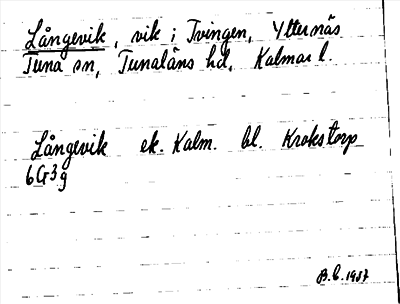 Långevik, vik i Tvingen, Ytternäs
Tuna sn, Tunaläns hd, Kalmar l.
Långevik ek. Kalm. bl. Krokstorp
6G3g
B.C. 1957